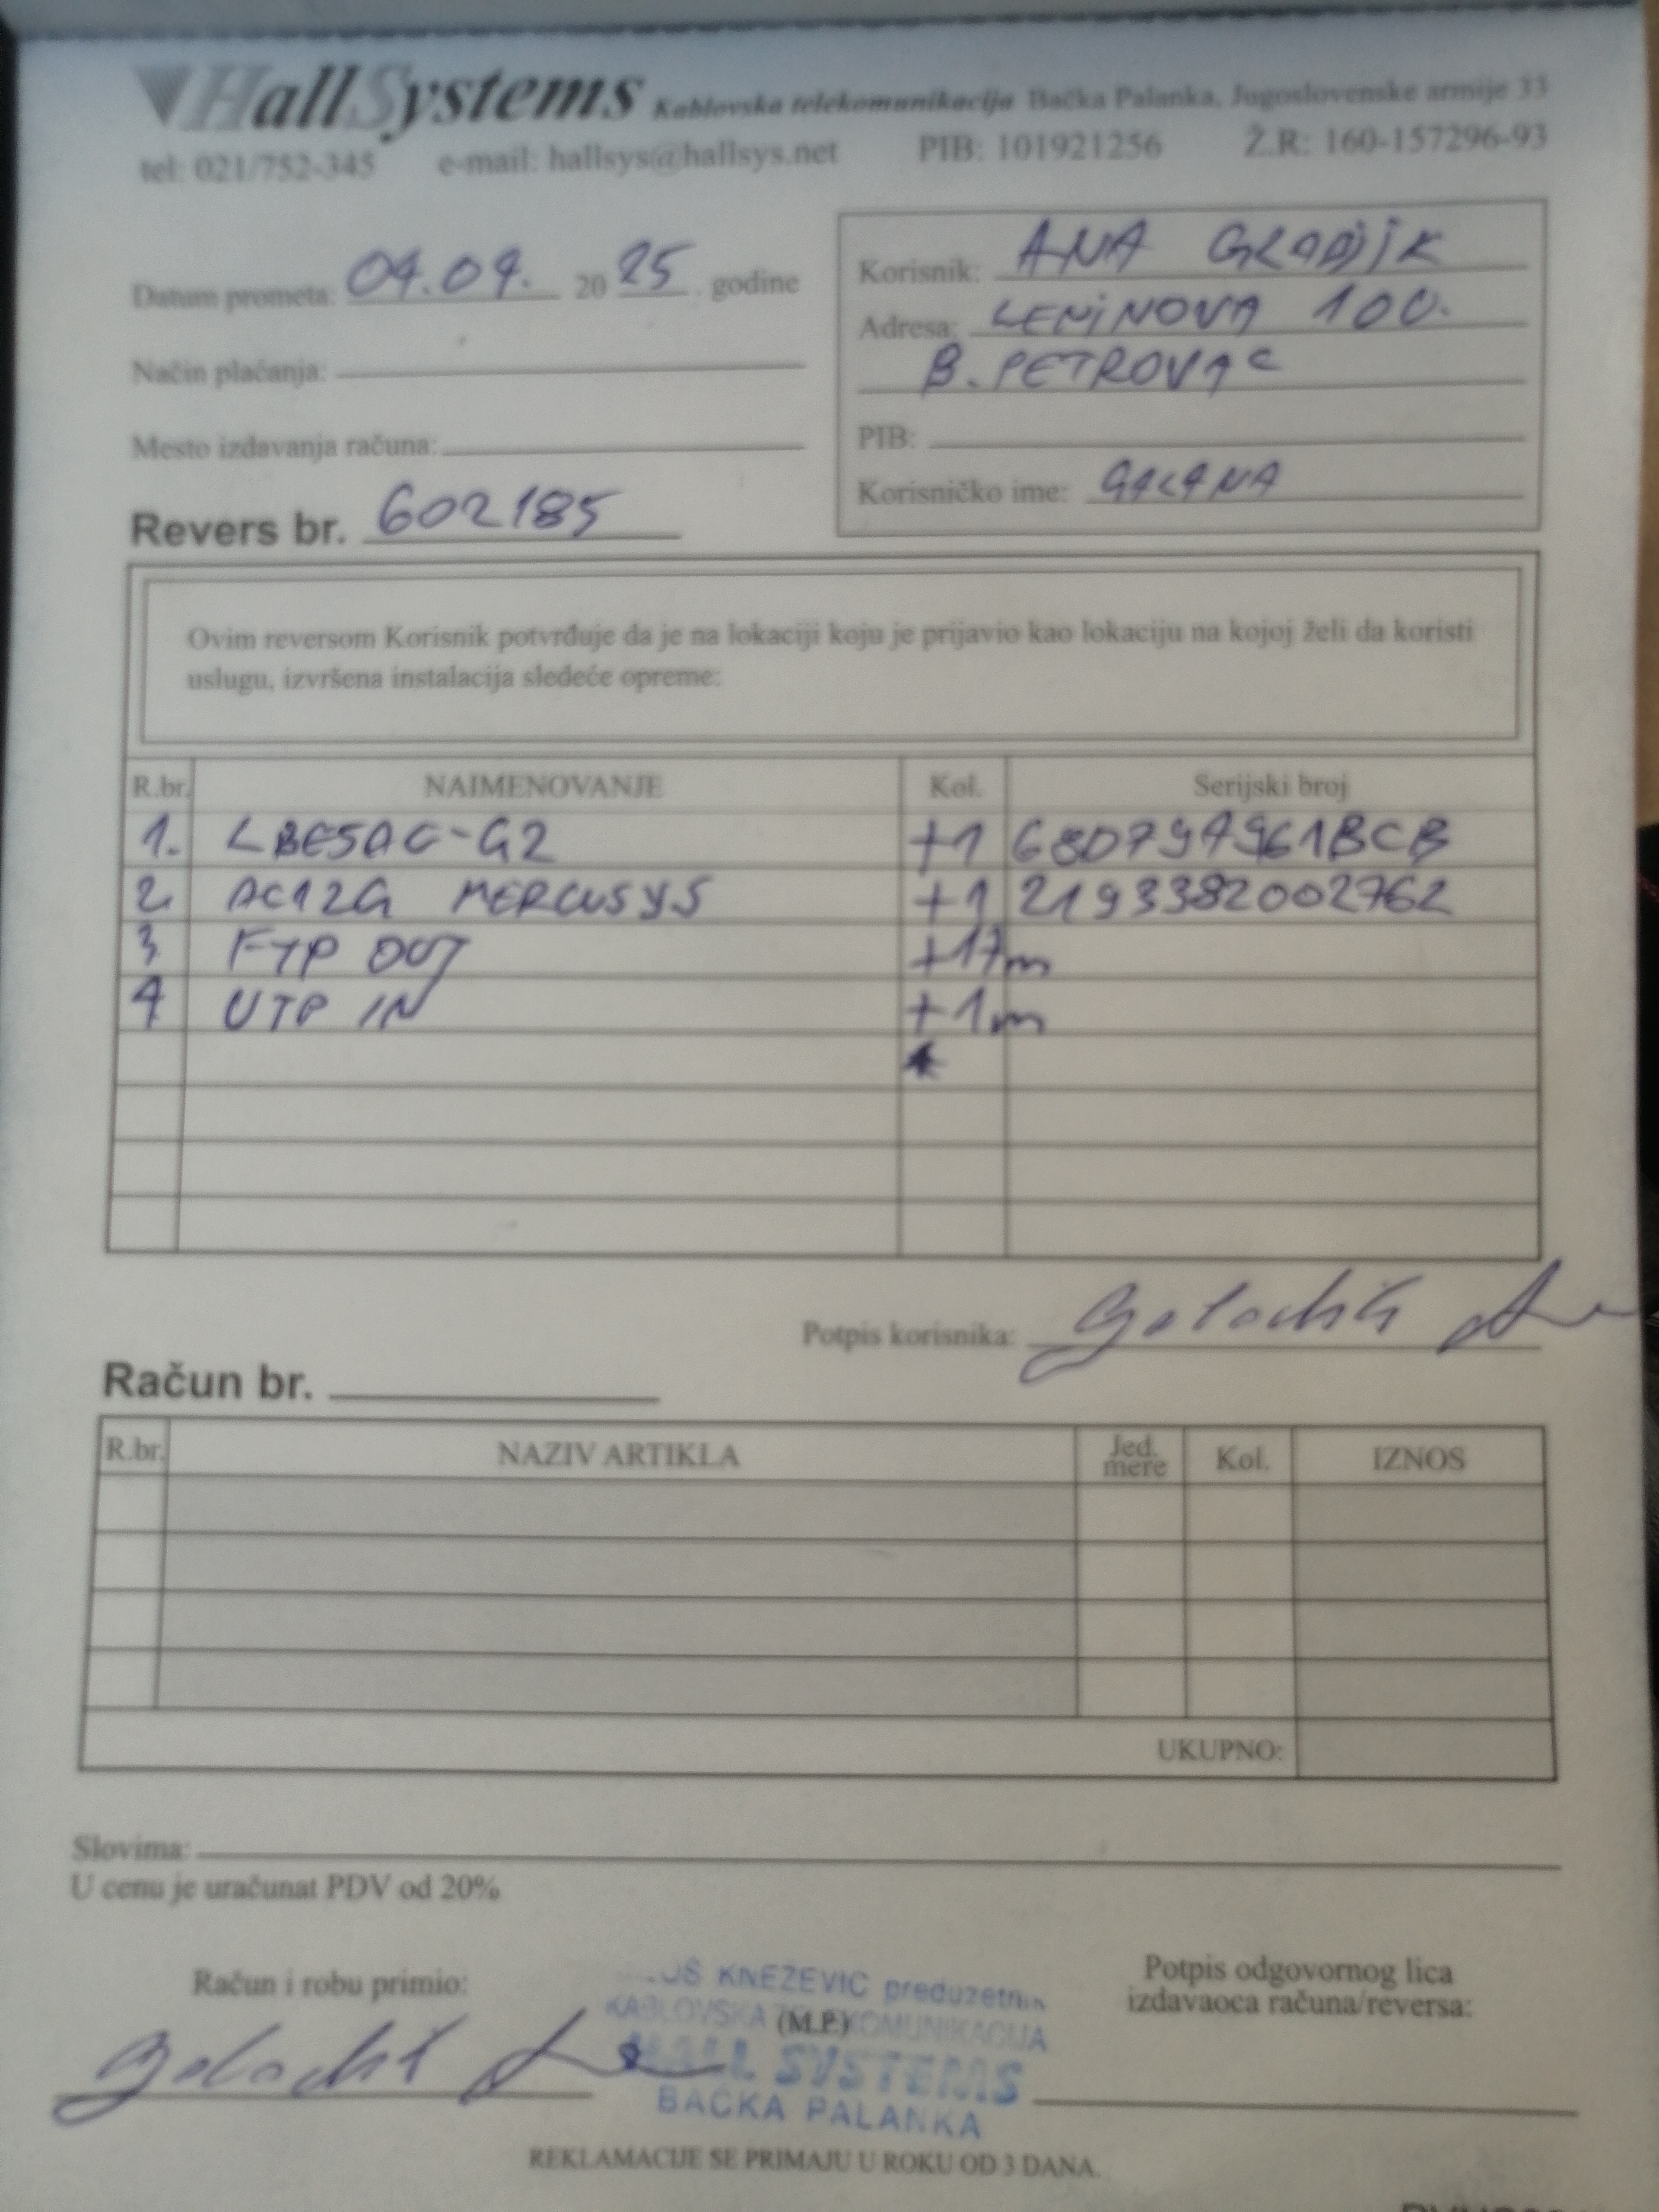 HallSystems Kablovska telekomunikacija Bačka Palanka, Jugoslovenske armije 33
tel: 021/752-345 e-mail: hallsys@hallsys.net PIB: 101921256 Ž.R: 160-157296-93
Datum prometa: 04.04. 20 25 . godine
Način plaćanja:
Mesto izdavanja računa:
Revers br. 602185
Korisnik: ANA
Adresa: LENINOVA 100.
B. PETROVAC
PIB:
Korisničko ime: GALANA
Ovim reversom Korisnik potvrđuje da je na lokaciji koju je prijavio kao lokaciju na kojoj želi da koristi
uslugu, izvršena instalacija sledeće opreme:
R.br. NAIMENOVANJE Kol. Serijski broj
1. LBE5AC-G2 +1 68D797961BCB
2. AC12G MERCUSYS +1 2193382002762
3 FTP OUT +17m
4 UTP IN +1m
Potpis korisnika:
Račun br.
R.br. NAZIV ARTIKLA Jed. mere Kol. IZNOS
UKUPNO:
Slovima:
U cenu je uračunat PDV od 20%
Račun i robu primio:
KNEZEVIC preduzetnik
KABLOVSKA TELEKOMUNIKACIJA
(M.P.)
HALL SYSTEMS
BAČKA PALANKA
Potpis odgovornog lica
izdavaoca računa/reversa:
REKLAMACIJE SE PRIMAJU U ROKU OD 3 DANA.